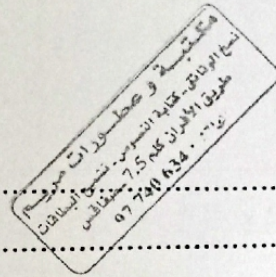 مكتبة و عطورات مريم
نسخ الوثائق - كتابة النصوص - شحن البطاقات
طريق الأفران كلم 7.5 - صفاقس
97 740 634